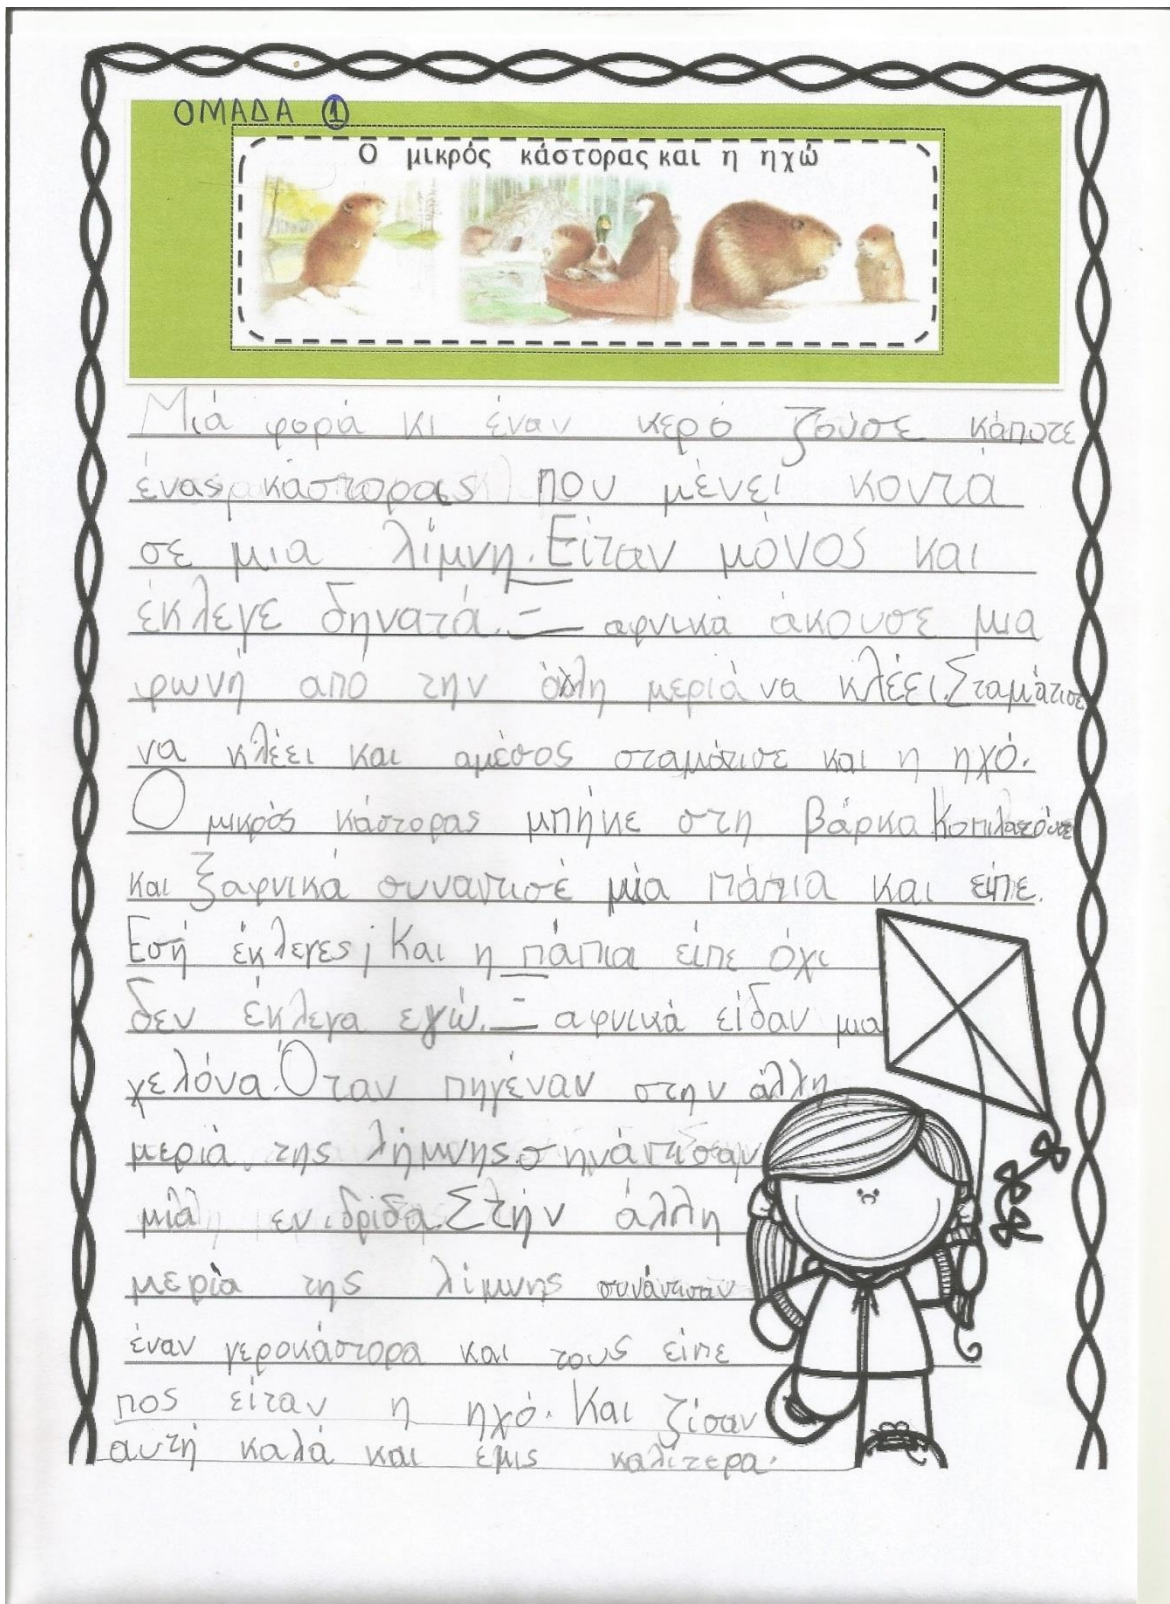 ΟΜΑΔΑ 1
Ο μικρός κάστορας και η ηχώ
Μιά φορά κι έναν κερό ζούσε κάποτε
ένας κάστορας που μένει κοντά
σε μια λίμνη. Είταν μόνος και
έκλεγε δηνατά. Ξαφνικά άκουσε μια
φωνή από την άλλη μεριά να κλέει. Σταμάτισε
να κλέει και αμέσος σταμάτισε και η ηχό.
Ο μικρός κάστορας μπήκε στη βάρκα
και ξαφνικά συναντισέ μία πάπια και είπε.
Εσή έκλεγες; Και η πάπια είπε όχι
δεν έκλεγα εγώ. Ξαφνικά είδαν μια
χελόνα. Όταν πηγέναν στην άλλη
μεριά της λήμνης σηνάντισαν
μία ενιδρίδα. Στήν άλλη
μεριά της λίμνης συνάντισαν
έναν γεροκάστορα και τους είπε
πος είταν η ηχό. Και ζίσαν
αυτή καλά και εμις καλίτερα.